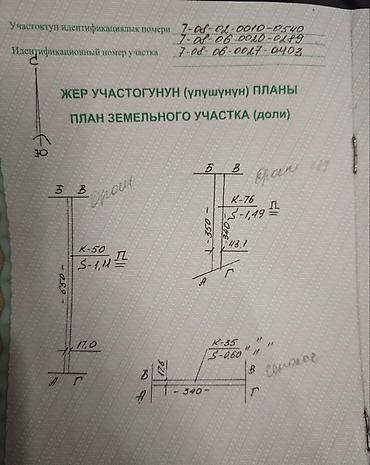 Участоктун идентификациялык номери 7-08-02-0010-0540
7-08-06-0020-0289
Идентификационный номер участка 7-08-06-0027-0402
С
Ю
ЖЕР УЧАСТОГУНУН (үлүшүнүн) ПЛАНЫ
ПЛАН ЗЕМЕЛЬНОГО УЧАСТКА (доли)
Б В
К-50
S-1,11 П
-650-
17,0
А Г
Б В
К-76
S-1,49 П
-350-
-340-
43,1
А Г
К-35 " "
S-0,60 " "
Б 17,6 В
А -340- Г
сенокос